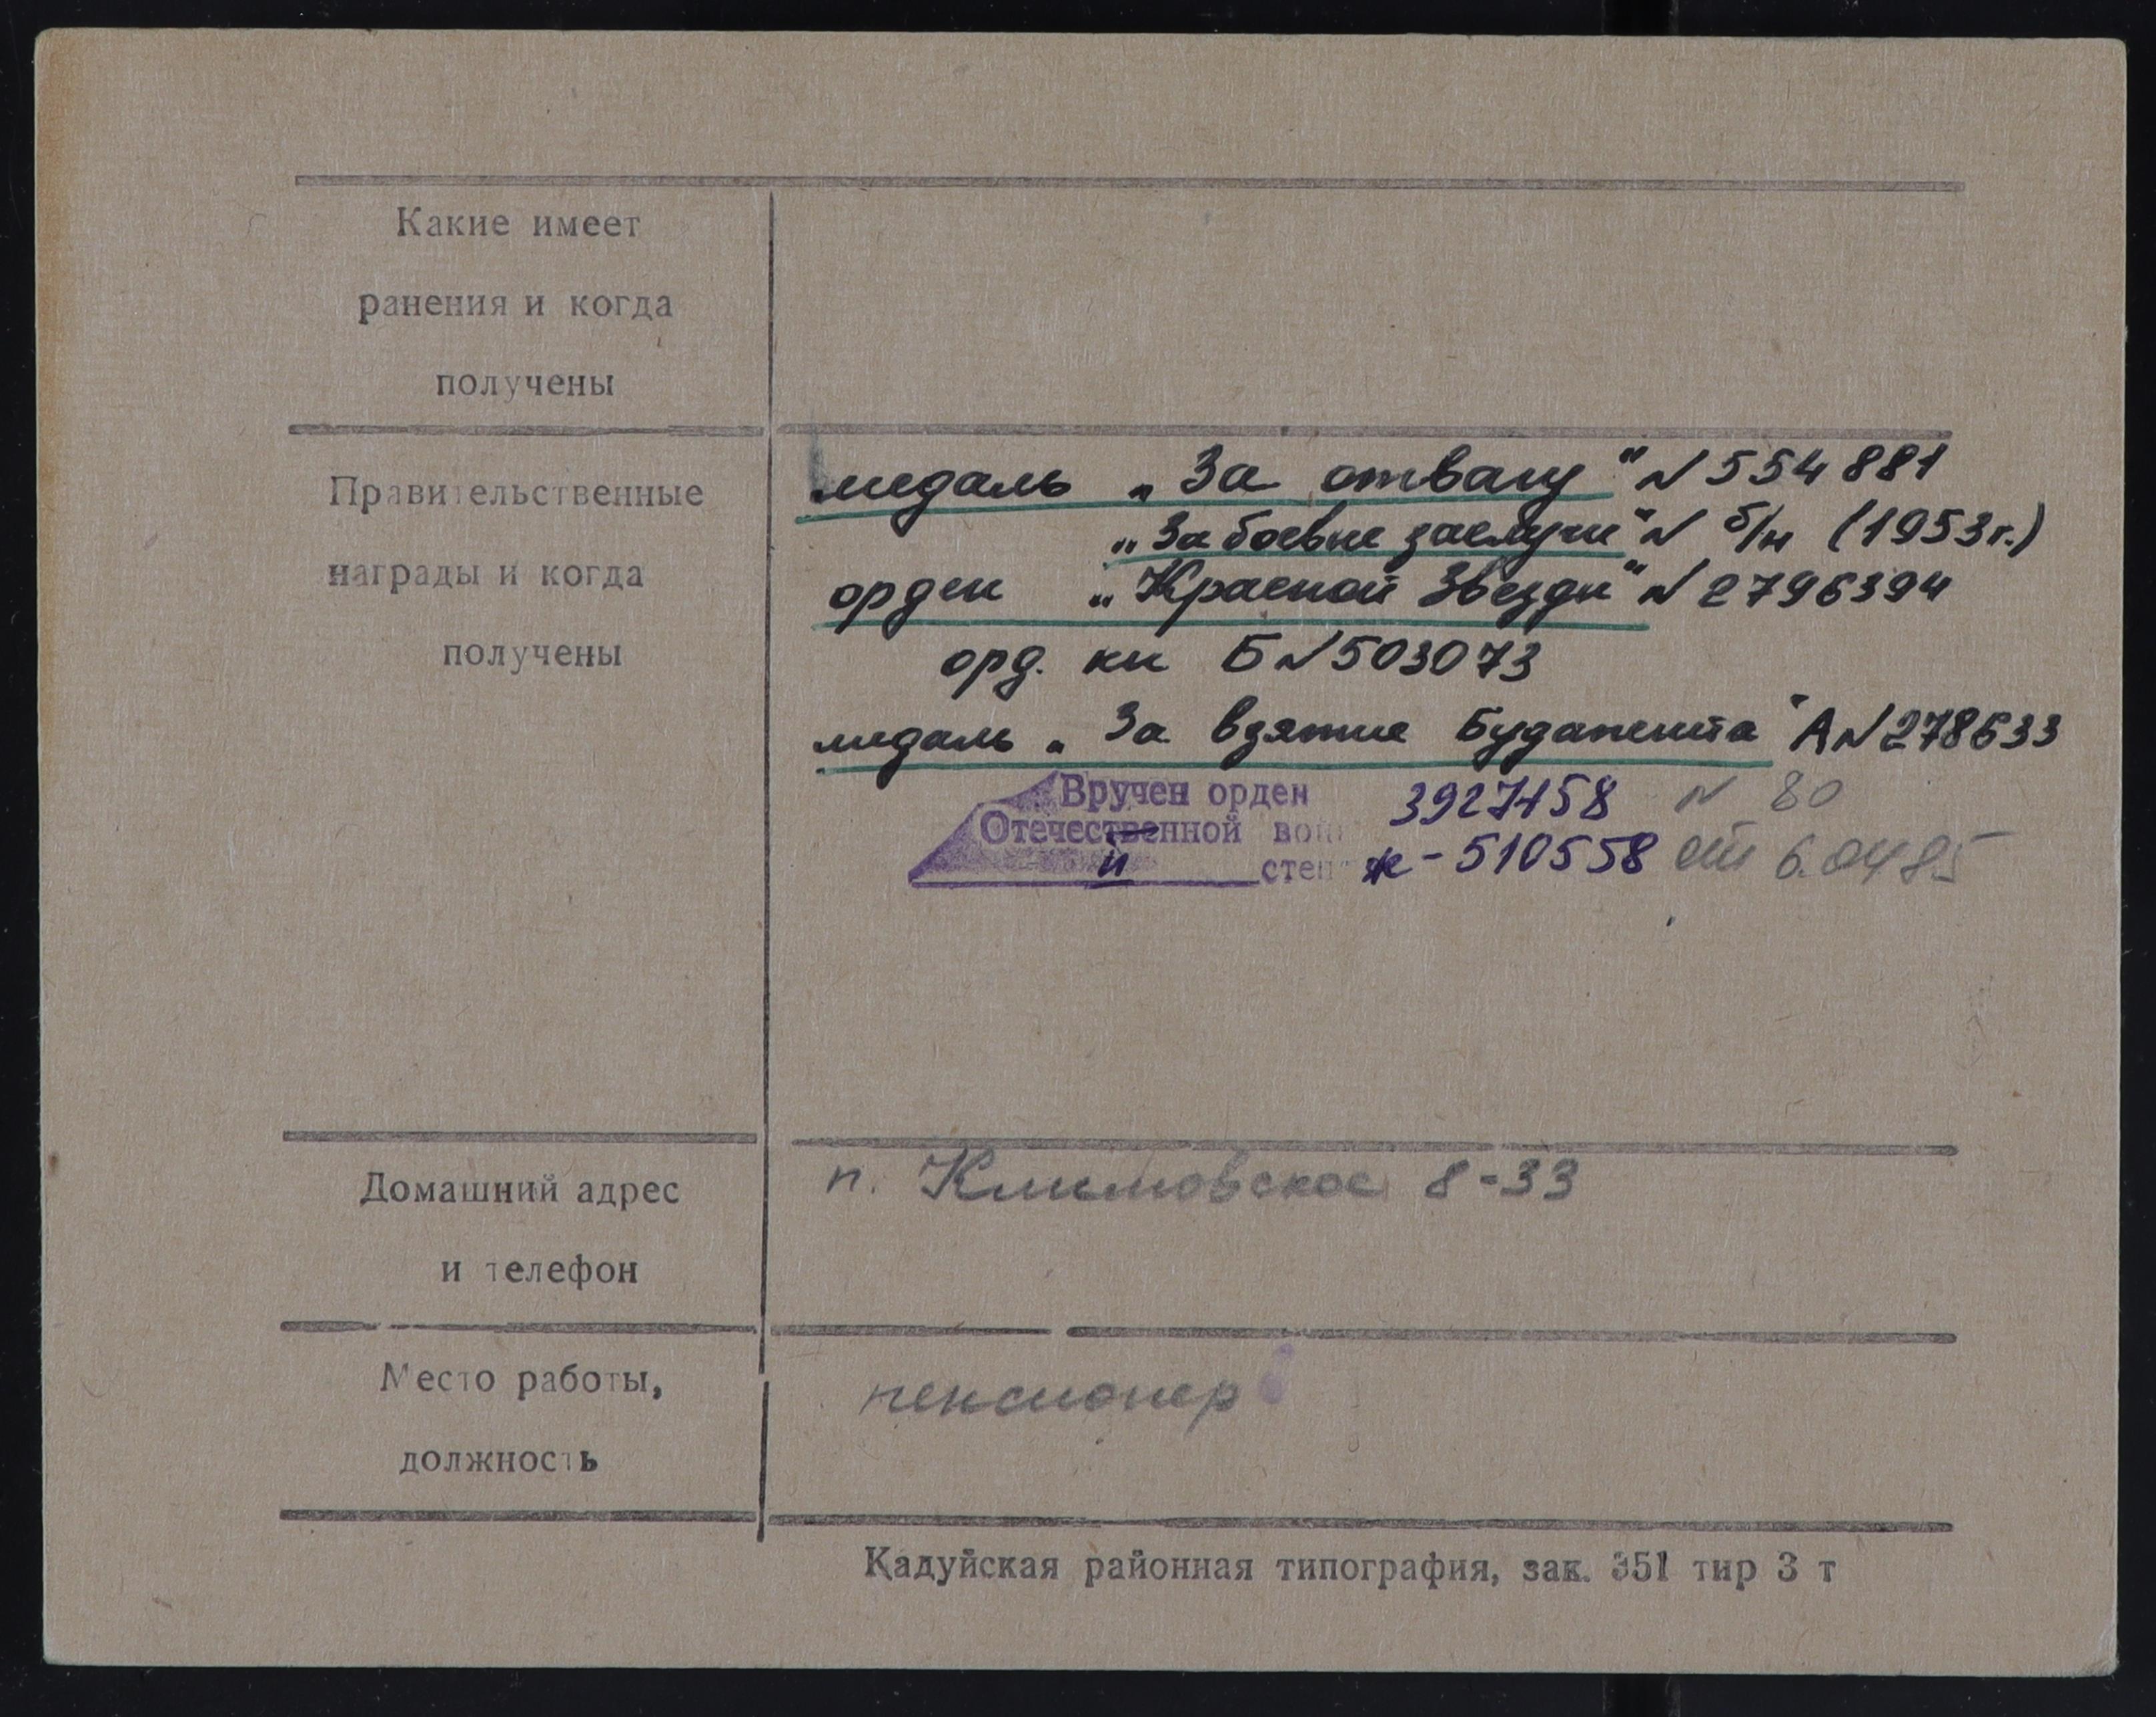 Какие имеет
ранения и когда
получены
Правительственные
награды и когда
получены
медаль „За отвагу" N 554881
„За боевые заслуги" N б/н (1953г.)
орден „Красной Звезды" N 2796394
орд. кн Б N 503073
медаль „За взятие Будапешта" А N 278633
Вручен орден 3927458 N 80
Отечественной вой
II степ ж-510558 от 6.04.85
Домашний адрес
и телефон
п. Климовское 8-33
Место работы,
должность
пенсионер
Кадуйская районная типография, зак. 351 тир 3 т